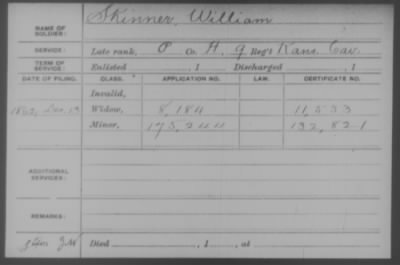 NAME OF SOLDIER: Skinner, William
SERVICE: Late rank, P Co. A, 9 Reg't Kans. Cav.
TERM OF SERVICE: Enlisted , 1 Discharged , 1
DATE OF FILING. CLASS. APPLICATION NO. LAW. CERTIFICATE NO.
Invalid,
1862, Dec. Widow, 8,184 11,533
Minor, 175,244 132,821
ADDITIONAL SERVICES:
REMARKS:
Died , 1 , at